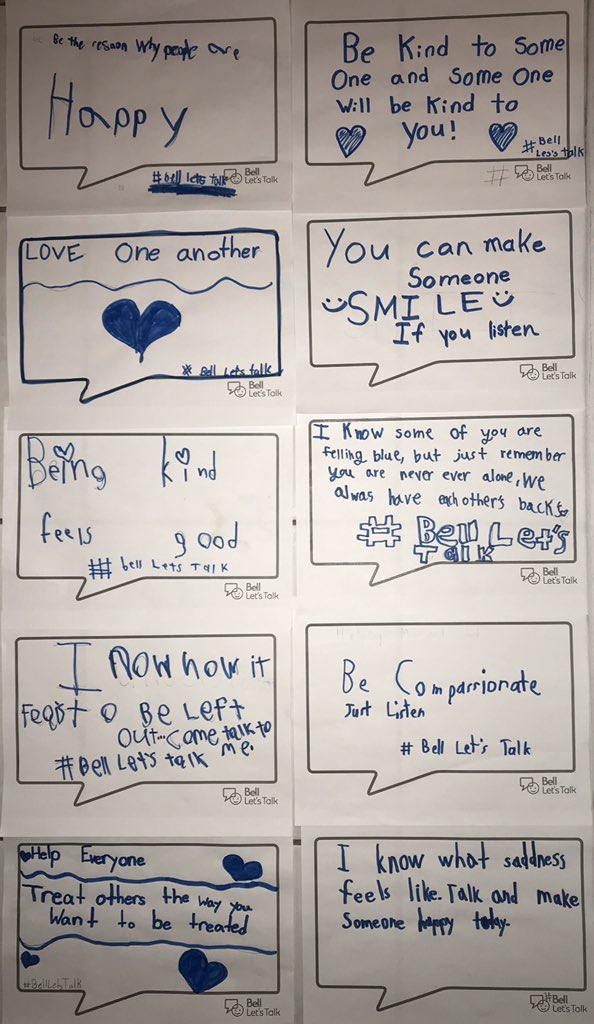 Be the reason Why people are
Happy
#bell lets talk
Bell
Let'sTalk
Be Kind to Some
One and Some One
will be Kind to
You!
#Bell
Les's talk
#
Bell
Let'sTalk
LOVE One another
# Bell Let's talk
Bell
Let'sTalk
You can make
Someone
SMILE
If you listen
Bell
Let'sTalk
Being kind
feels good
# bell Let's Talk
Bell
Let'sTalk
I Know some of you are
Felling blue, but just remember
you are never ever alone, We
alwas have each other's backs
# Bell Let's
Talk
Bell
Let'sTalk
I now how it
to Be Left
out... Come talk to
me.
#Bell Let's talk
Bell
Let'sTalk
Be Compassionate
Just Listen
# Bell Let's Talk
Bell
Let'sTalk
Help Everyone
Treat others the way you
Want to be treated
#BellLetsTalk
Bell
Let'sTalk
I know what saddness
feels like. Talk and make
Someone happy today.
#Bell
Let'sTalk